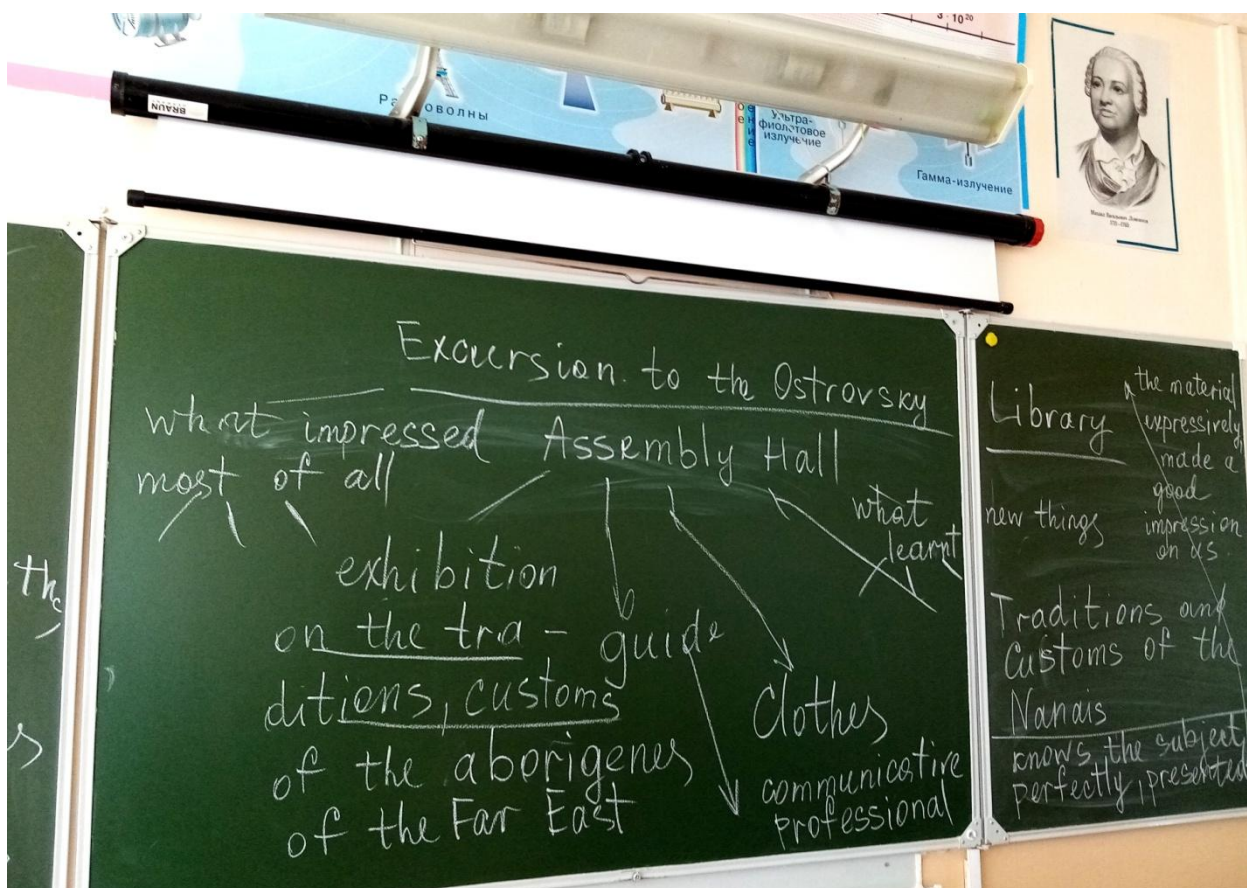 3 · 10²⁰
BRAUN
Ра
оволны
Ультра-
фиолетовое
излучение
Гамма-излучение
th
Excursion to the Ostrovsky
what impressed
most of all
Assembly Hall
exhibition
on the tra-
ditions, customs
of the aborigenes
of the Far East
guide
clothes
communicative
professional
what
learnt
Library
new things
the material
expressively,
made a
good
impression
on us.
Traditions and
Customs of the
Nanais
knows the subject
perfectly, presented